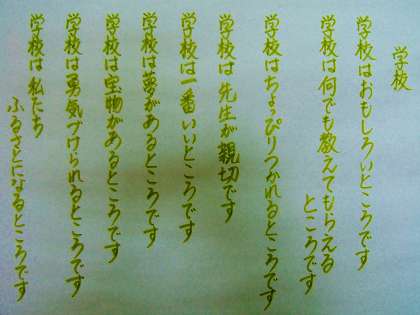 学校
学校はおもしろいところです
学校は何でも教えてもらえる
ところです
学校はちょっぴりつかれるところです
学校は先生が親切です
学校は一番いいところです
学校は夢があるところです
学校は宝物があるところです
学校は勇気づけられるところです
学校は私たち
ふるさとになるところです